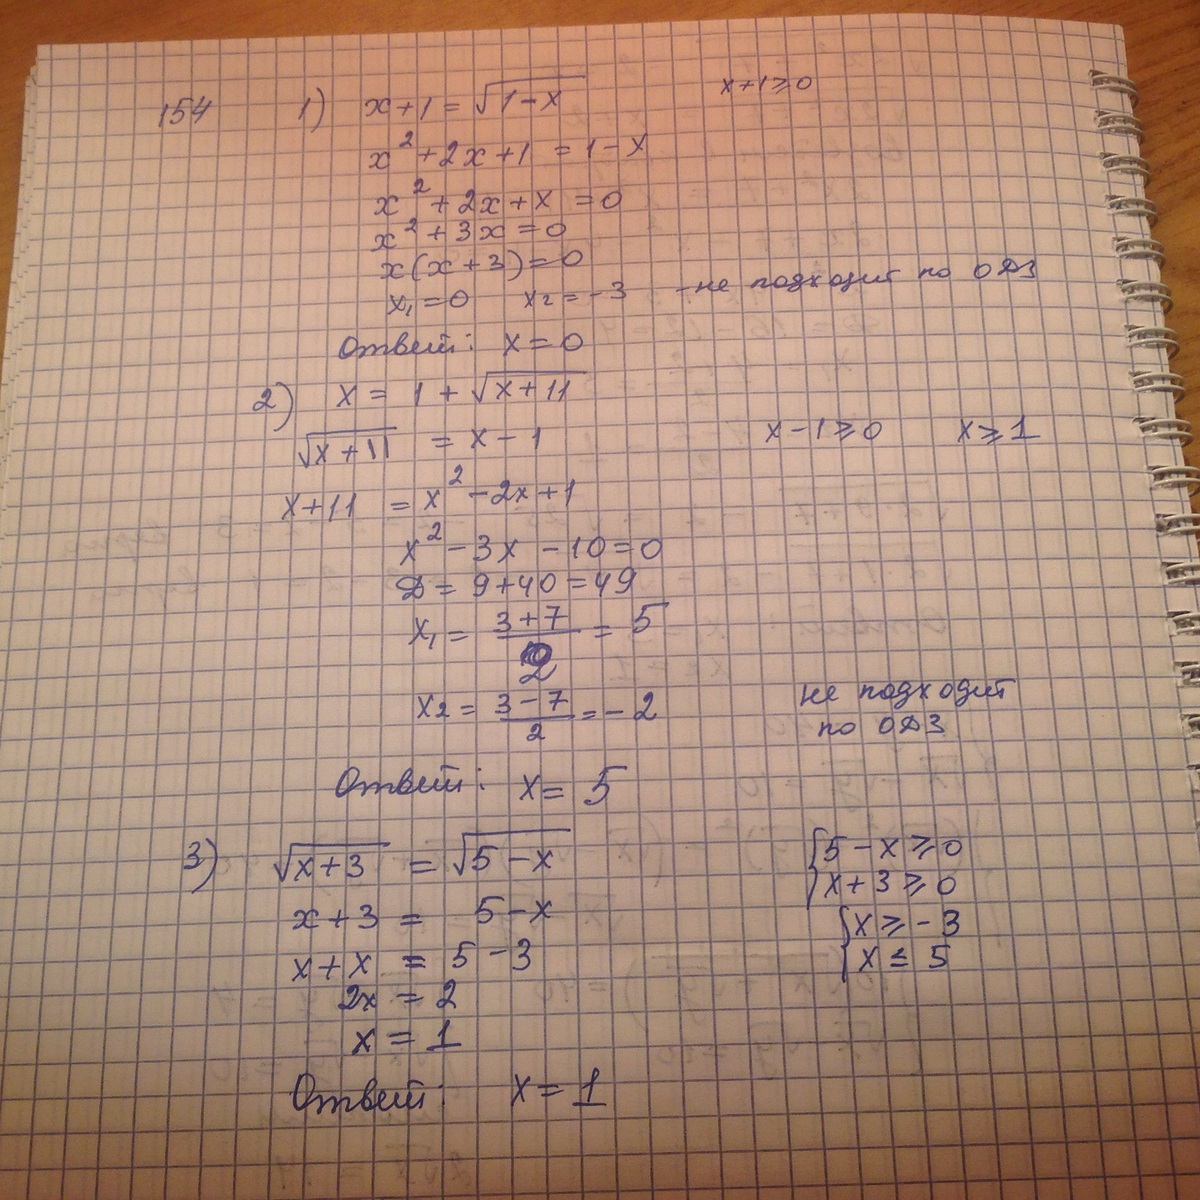 154 1) x+1 = √(1-x) x+1≥0
x²+2x+1 = 1-x
x²+2x+x = 0
x²+3x=0
x(x+3)=0
x₁=0 x₂=-3 - не подходит по ОДЗ
Ответ: x=0
2) x = 1 + √(x+11)
√(x+11) = x-1 x-1≥0 x≥1
x+11 = x²-2x+1
x²-3x-10=0
D=9+40=49
x₁ = (3+7)/2 = 5
x₂ = (3-7)/2 = -2 не подходит
по ОДЗ
Ответ: x= 5
3) √(x+3) = √(5-x) {5-x≥0
x+3≥0
x+3 = 5-x {x≥-3
x+x = 5-3 x≤5
2x = 2
x = 1
Ответ: x=1